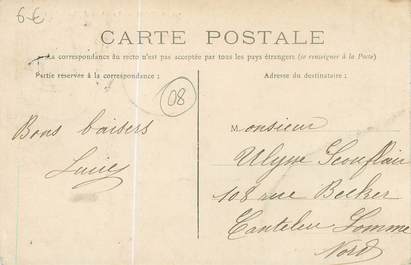 6€
CARTE POSTALE
La correspondance au recto n'est pas acceptée par tous les pays étrangers (se renseigner à la Poste)
Partie réservée à la correspondance :
Adresse du destinataire :
08
Bons baisers
Lucie
Monsieur
Ulysse
108 rue Becker
Canteleu Lomme
Nord